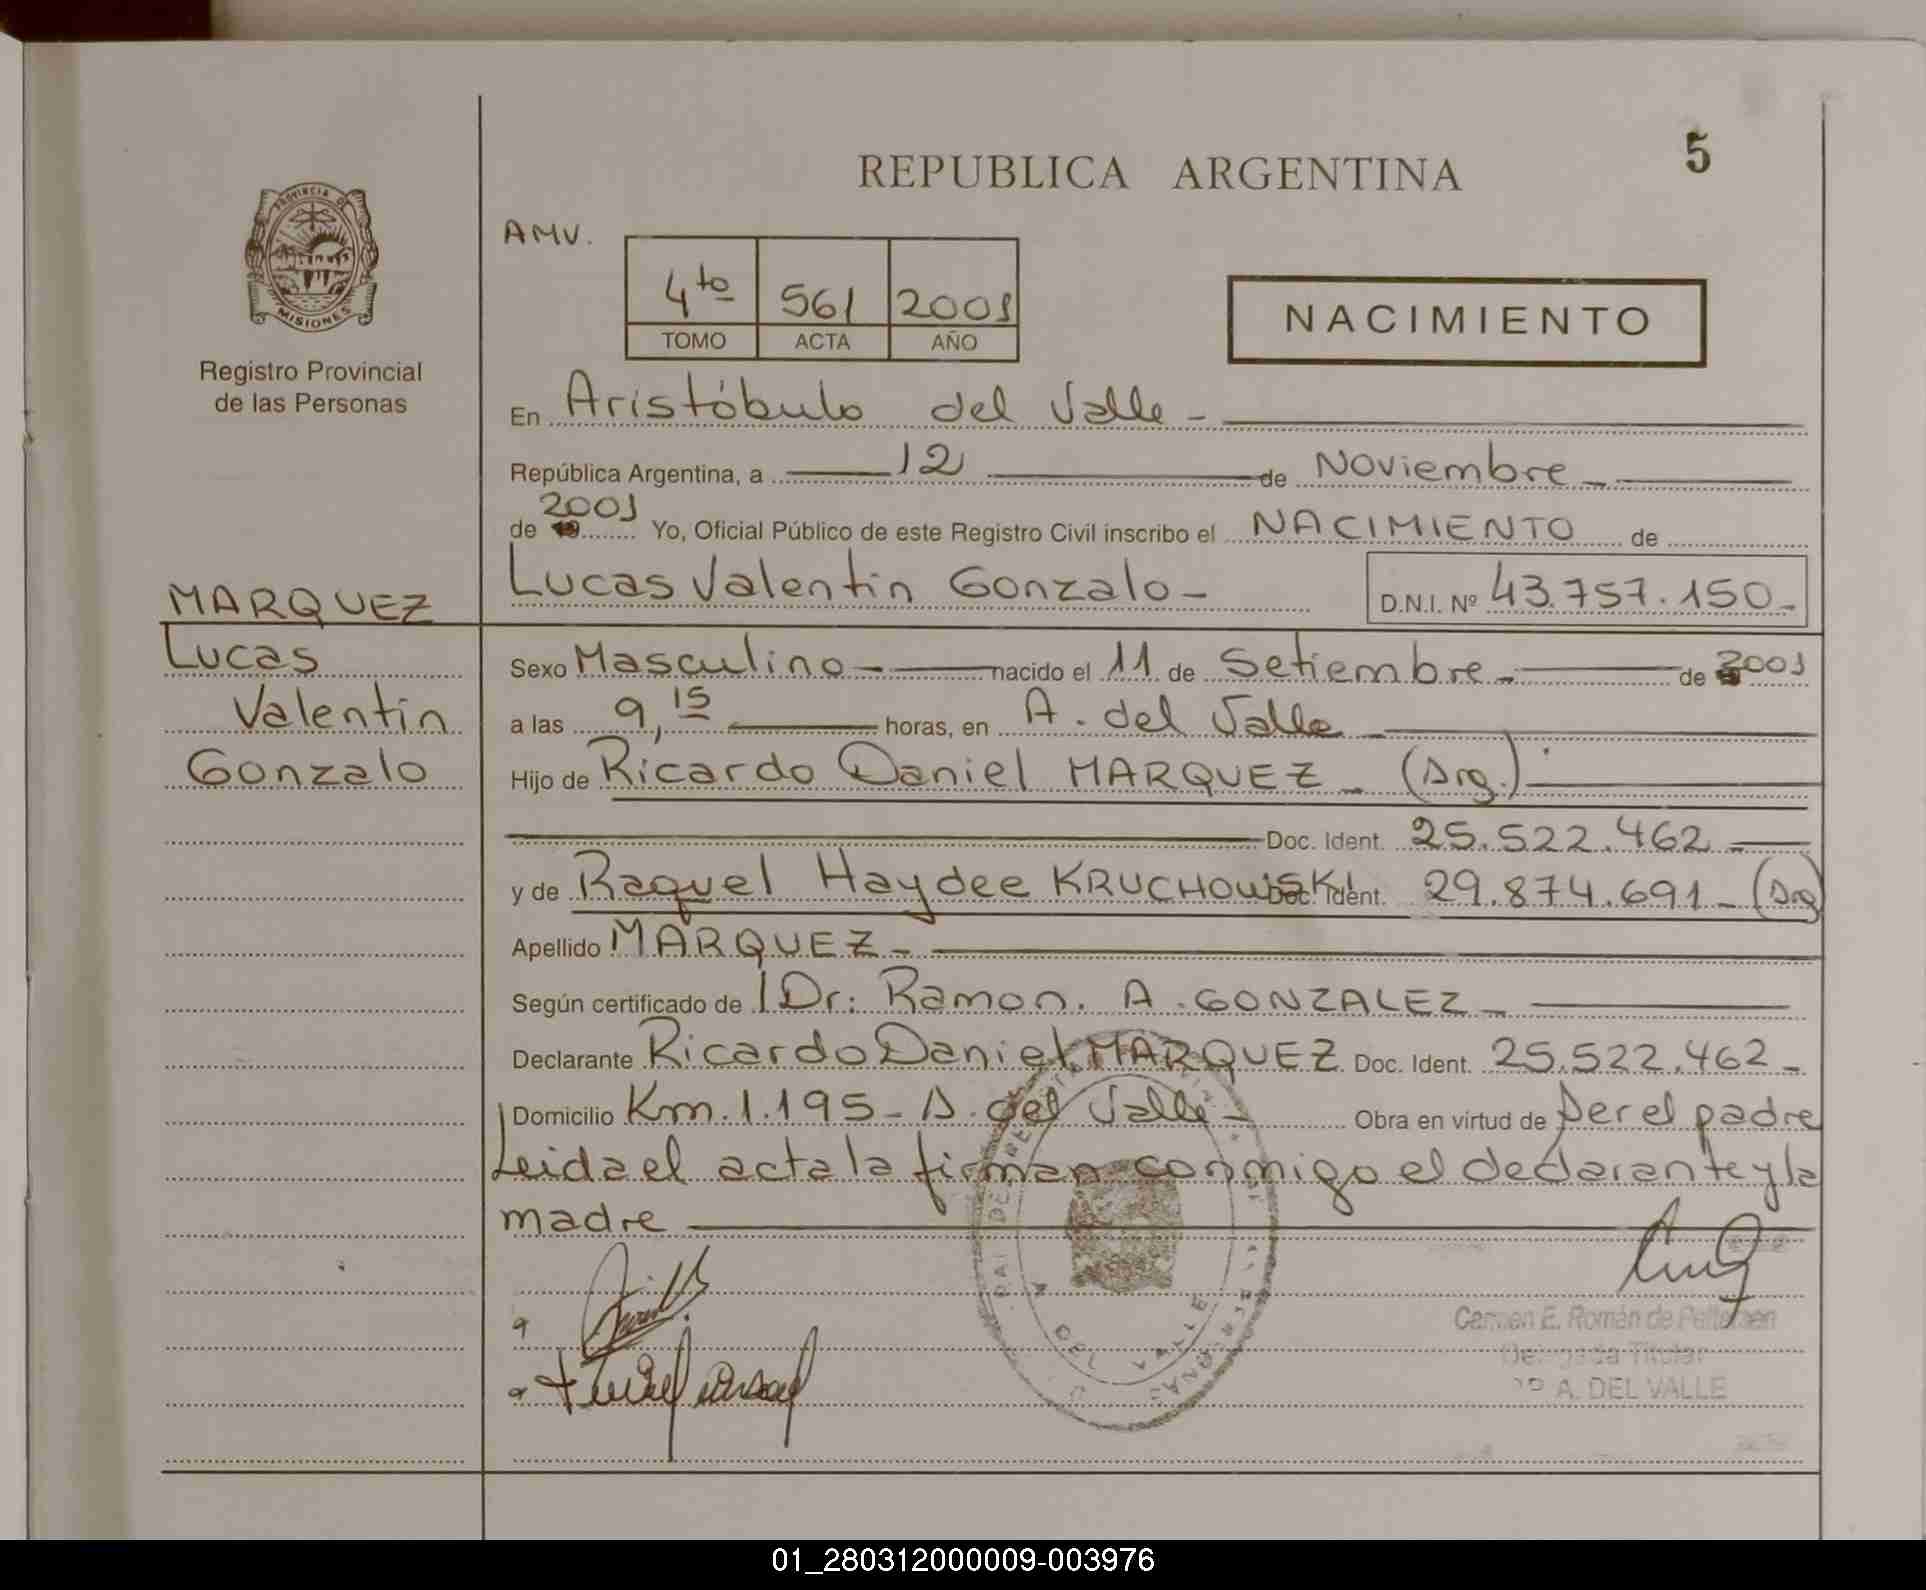 5
REPUBLICA ARGENTINA
PROVINCIA DE
MISIONES
Registro Provincial
de las Personas
AMV.
4to 561 2001
TOMO ACTA AÑO
NACIMIENTO
En Aristóbulo del Valle -
República Argentina, a 12 de Noviembre -
de 2001 Yo, Oficial Público de este Registro Civil inscribo el NACIMIENTO de
Lucas Valentin Gonzalo - D.N.I. Nº 43.757.150-
MARQUEZ
Lucas
Valentin
Gonzalo
Sexo Masculino - nacido el 11 de Setiembre - de 2001
a las 9,15 horas, en A. del Valle
Hijo de Ricardo Daniel MARQUEZ - (Arg.)
Doc. Ident. 25.522.462 -
y de Raquel Haydee KRUCHOWSKI Doc. Ident. 29.874.691 - (Arg
Apellido MARQUEZ -
Según certificado de Dr: Ramon. A. GONZALEZ -
Declarante Ricardo Daniel MARQUEZ Doc. Ident. 25.522.462 -
Domicilio Km. 1.195 - A. del Valle - Obra en virtud de ser el padre
Leida el acta la firman conmigo el declarante y la
madre
Carmen E. Román de
Delegada Titular
A. DEL VALLE
DEL VALLE
01_280312000009-003976